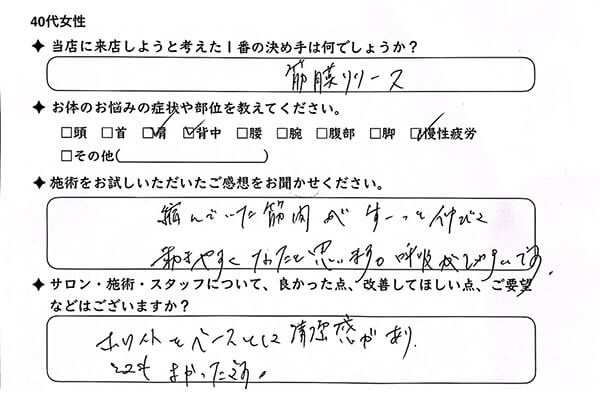 40代女性
✦ 当店に来店しようと考えた1番の決め手は何でしょうか？
筋膜リリース
✦ お体のお悩みの症状や部位を教えてください。
□頭 □首 ☑肩 ☑背中 □腰 □腕 □腹部 □脚 ☑慢性疲労
□その他( )
✦ 施術をお試しいただいたご感想をお聞かせください。
縮んでいた筋肉がすーっと伸びて
動きやすくなったと思います。呼吸がしやすいです。
✦ サロン・施術・スタッフについて、良かった点、改善してほしい点、ご要望
などはございますか？
ホワイトをベースとした清潔感があり、
とても よかったです。